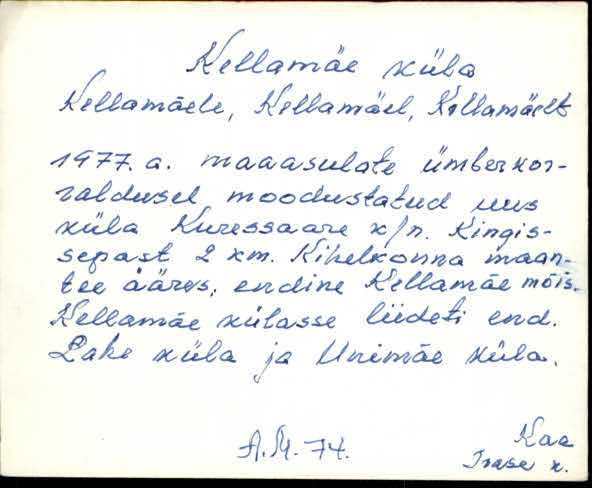 Kellamäe küla
Kellamäele, Kellamäel, Kellamäelt
1977. a. maaasulate ümberkor-
raldusel moodustatud uus
küla Kuressaare k/n. Kingis-
sepast 2 km. Kihelkonna maan-
tee ääres, endine Kellamäe mõis.
Kellamäe külasse liideti end.
Lahe küla ja Unimäe küla.
A.M. 74.
Kaa
k.